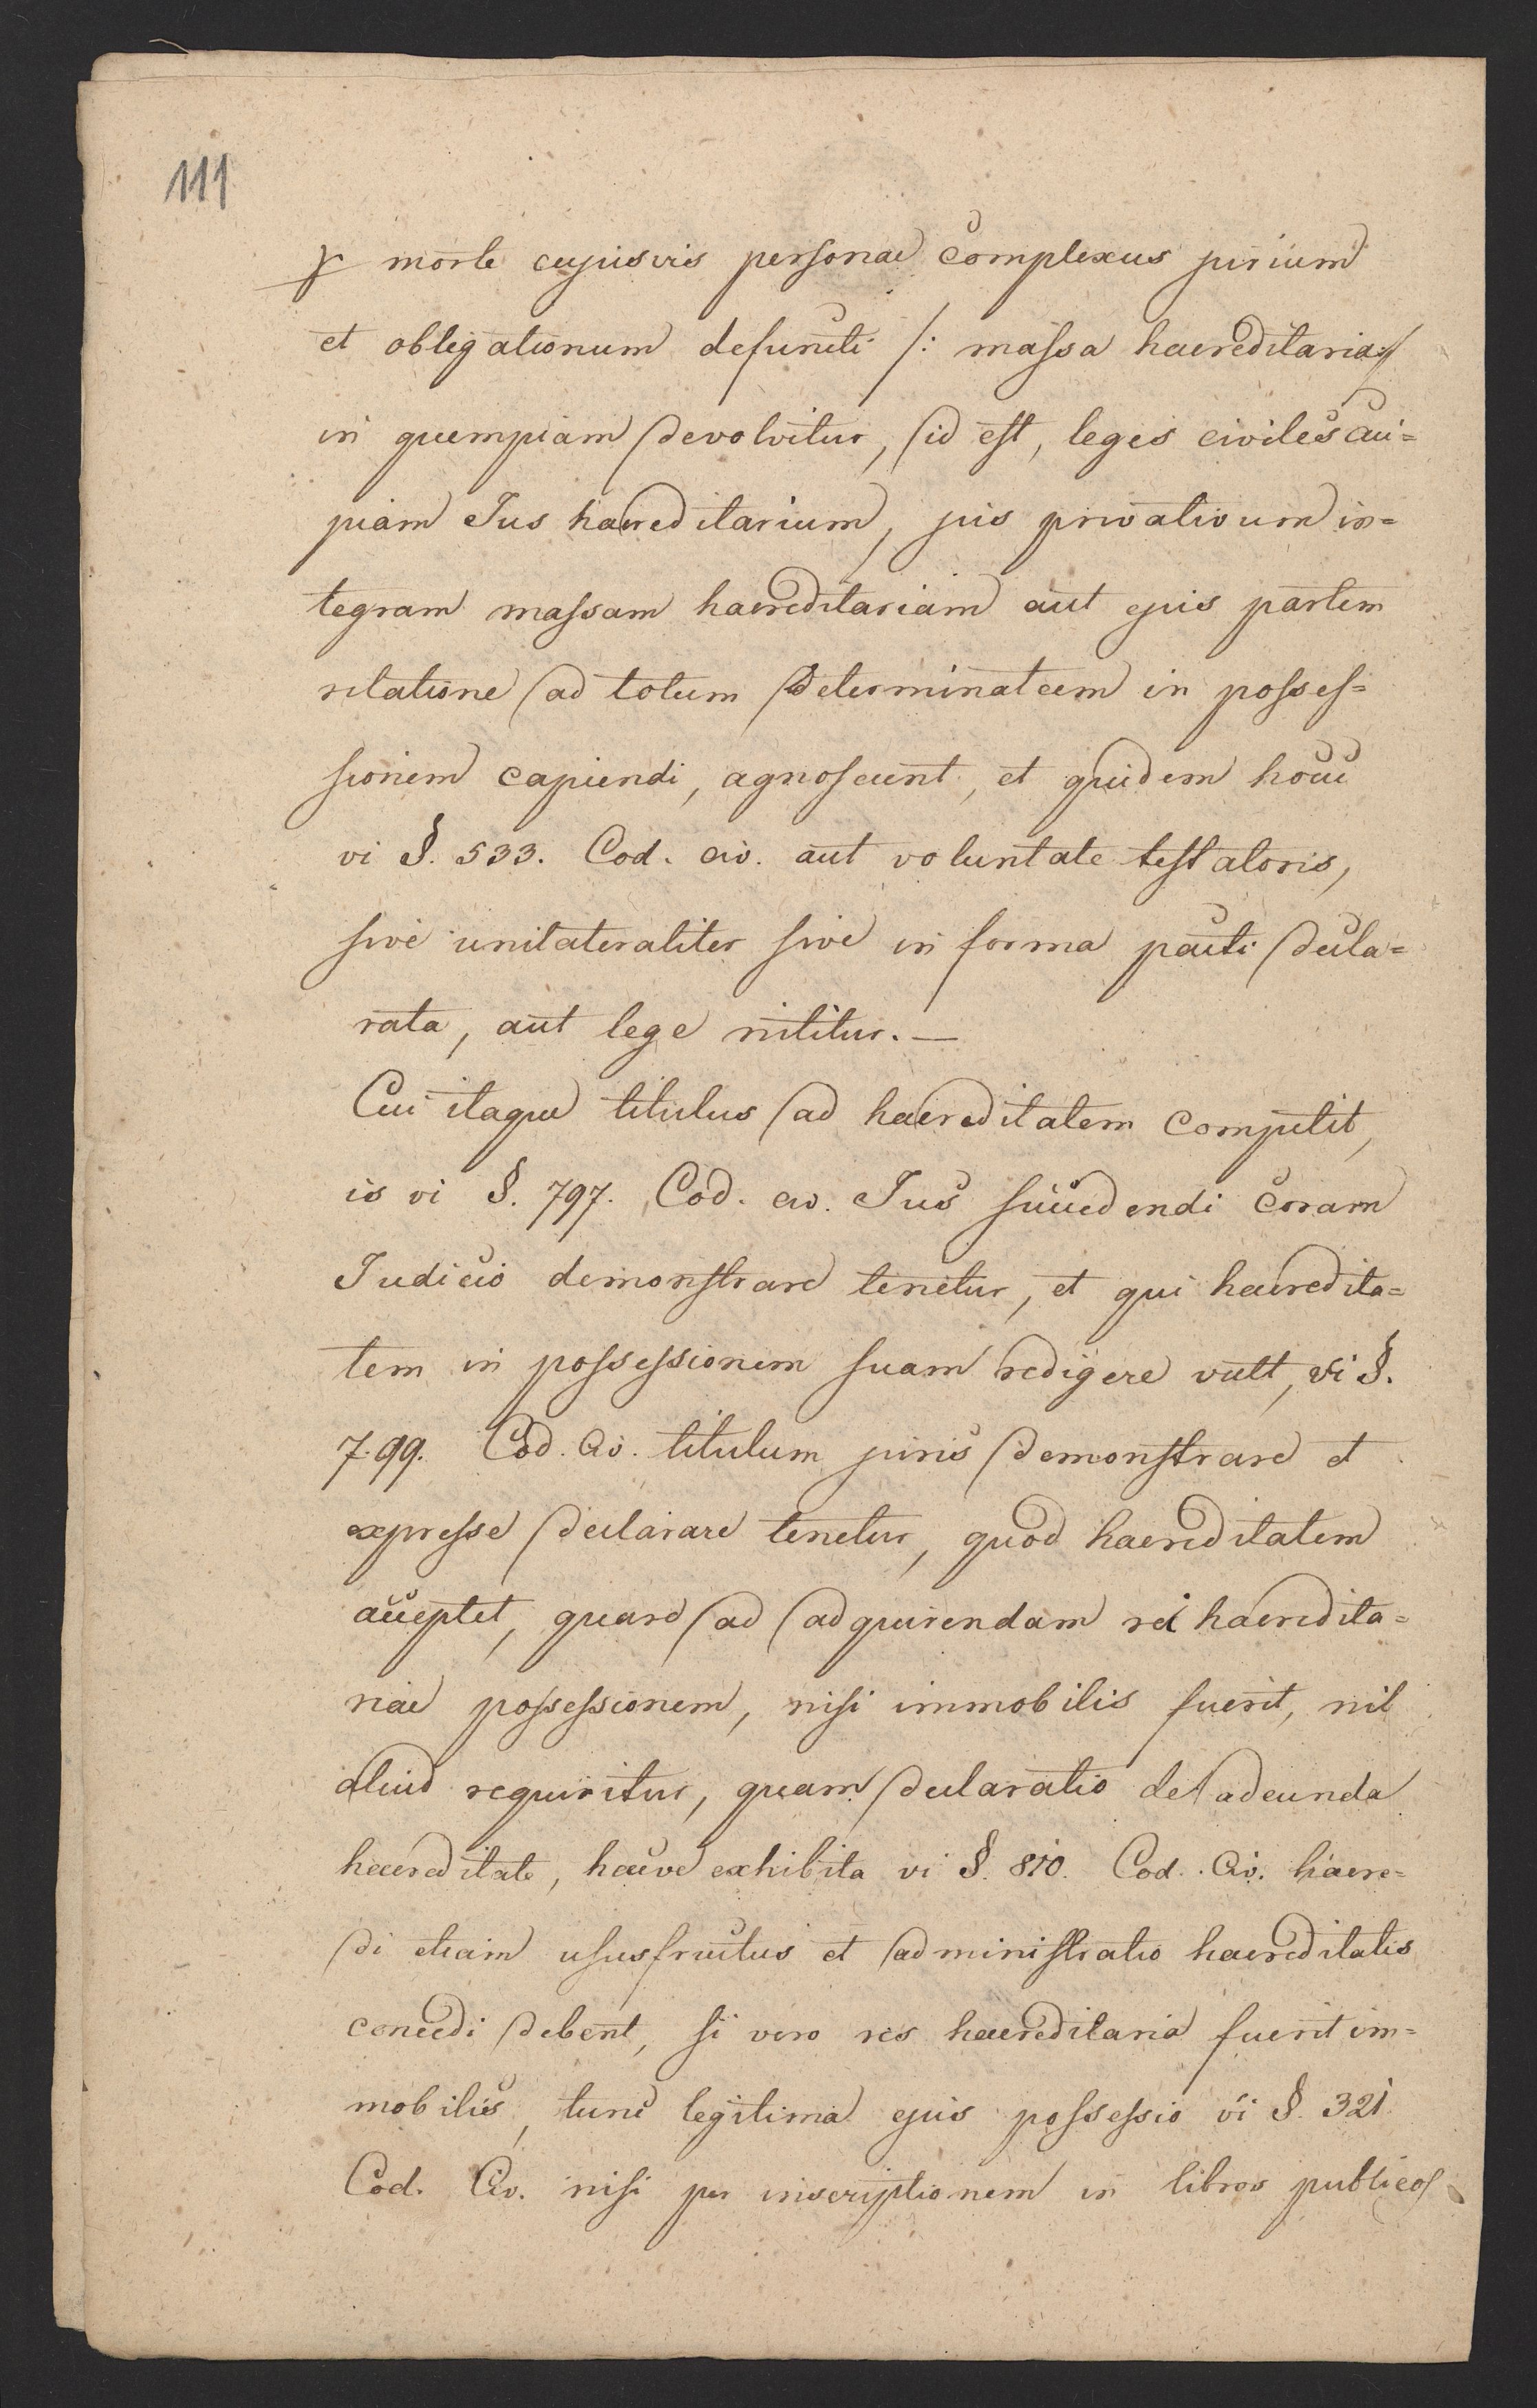 111
morte cujusvis personae complexus jurium
et obligationum defuncti /: massa haereditaria :/
in quempiam devolvitur, id est, leges civiles cui=
piam Jus haereditarium, jus privativum in=
tegram massam haereditariam aut ejus partem
relatione ad totum determinatam in posses=
sionem capiendi, agnoscunt, et quidem hocce
vi §. 533. Cod. civ. aut voluntate testatoris,
sive unilateraliter sive in forma pacti decla=
rata, aut lege nititur. —
Cui itaque titulus ad haereditatem competit,
is vi §. 797. Cod. civ. Jus succedendi coram
Judicio demonstrare tenetur, et qui haeredita=
tem in possessionem suam redigere vult, vi §.
799. Cod. Civ. titulum juris demonstrare et
expresse declarare tenetur, quod haereditatem
acceptet, quare ad adquirendam rei haeredita=
riae possessionem, nisi immobilis fuerit, nil
aliud requiritur, quam declaratio de adeunda
haereditate, hacve exhibita vi §. 810. Cod. Civ. haere=
di etiam ususfructus et administratio haereditatis
concedi debent, si vero res haereditaria fuerit im=
mobilis, tunc legitima ejus possessio vi §. 321
Cod. Civ. nisi per inscriptionem in libros publicos